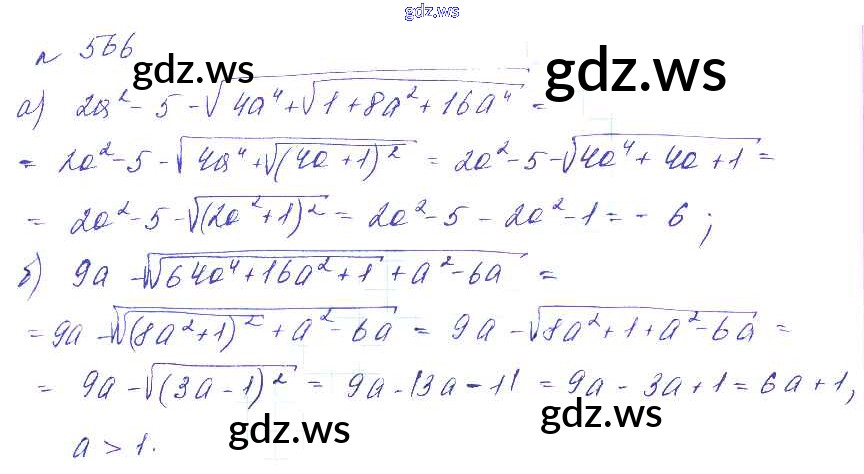 gdz.ws
№ 566
gdz.ws
gdz.ws
а) 2a² - 5 - √(4a⁴ + √(1 + 8a² + 16a⁴)) =
= 2a² - 5 - √(4a⁴ + √((4a + 1)²)) = 2a² - 5 - √(4a⁴ + 4a + 1) =
= 2a² - 5 - √((2a² + 1)²) = 2a² - 5 - 2a² - 1 = - 6 ;
б) 9a - √(√(64a⁴ + 16a² + 1) + a² - 6a) =
= 9a - √(√((8a² + 1)²) + a² - 6a) = 9a - √(8a² + 1 + a² - 6a) =
= 9a - √((3a - 1)²) = 9a - |3a - 1| = 9a - 3a + 1 = 6a + 1,
gdz.ws
gdz.ws
a > 1.